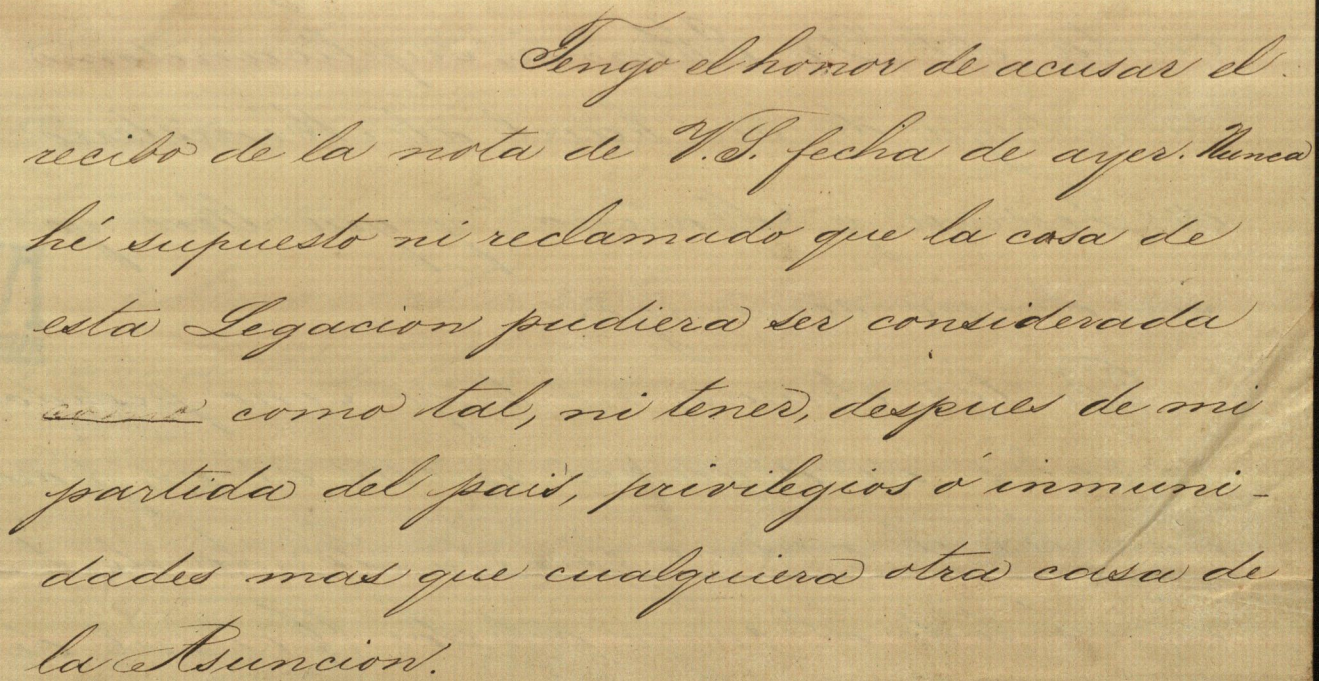 Tengo el honor de acusar el
recibo de la nota de V.S. fecha de ayer. Nunca
hé supuesto ni reclamado que la casa de
esta Legacion pudiera ser considerada
como como tal, ni tener, despues de mi
partida del pais, privilegios ó inmuni-
dades mas que cualquiera otra casa de
la Asuncion.